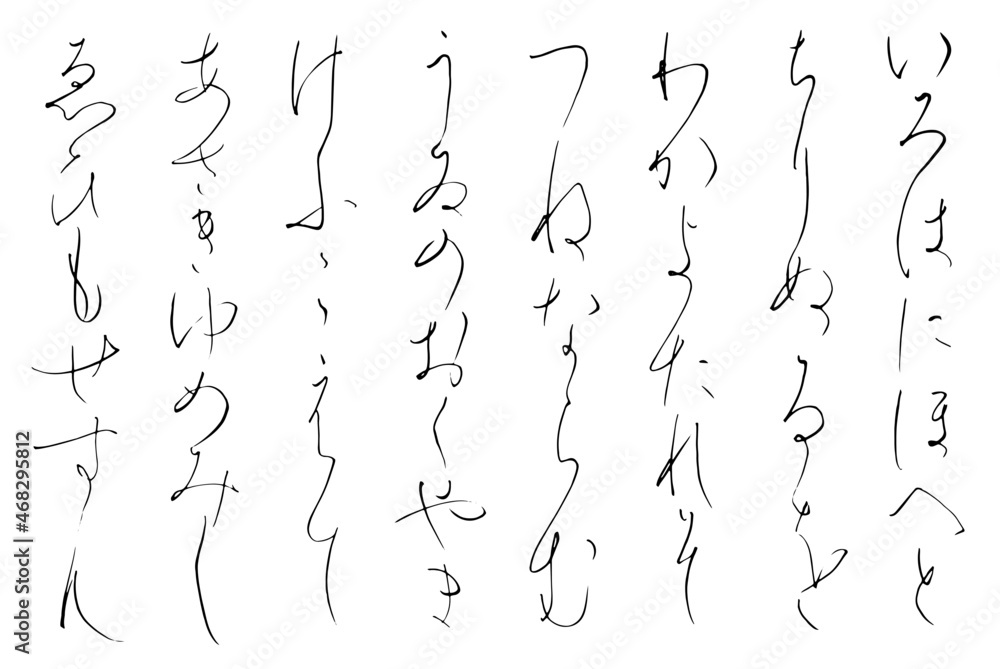 いろはにほへと
ちりぬるを
わかよたれそ
つねならむ
うゐのおくやま
けふこえて
あさきゆめみし
ゑひもせすん
Adobe Stock | #468295812